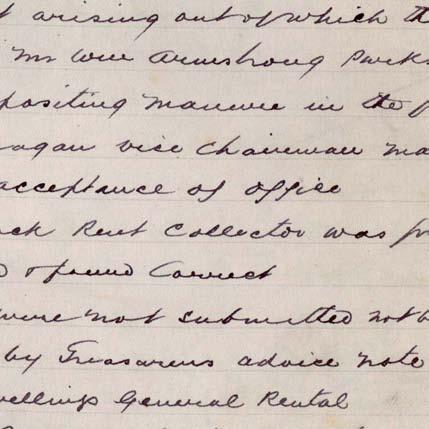 arising out of which th
Mr Wm Armstrong Parks
positing manure in the
agan vice Chairman ma
acceptance of office
ck Rent Collector was
& found Correct
were not submitted not
by Treasurers advice note
wellings General Rental